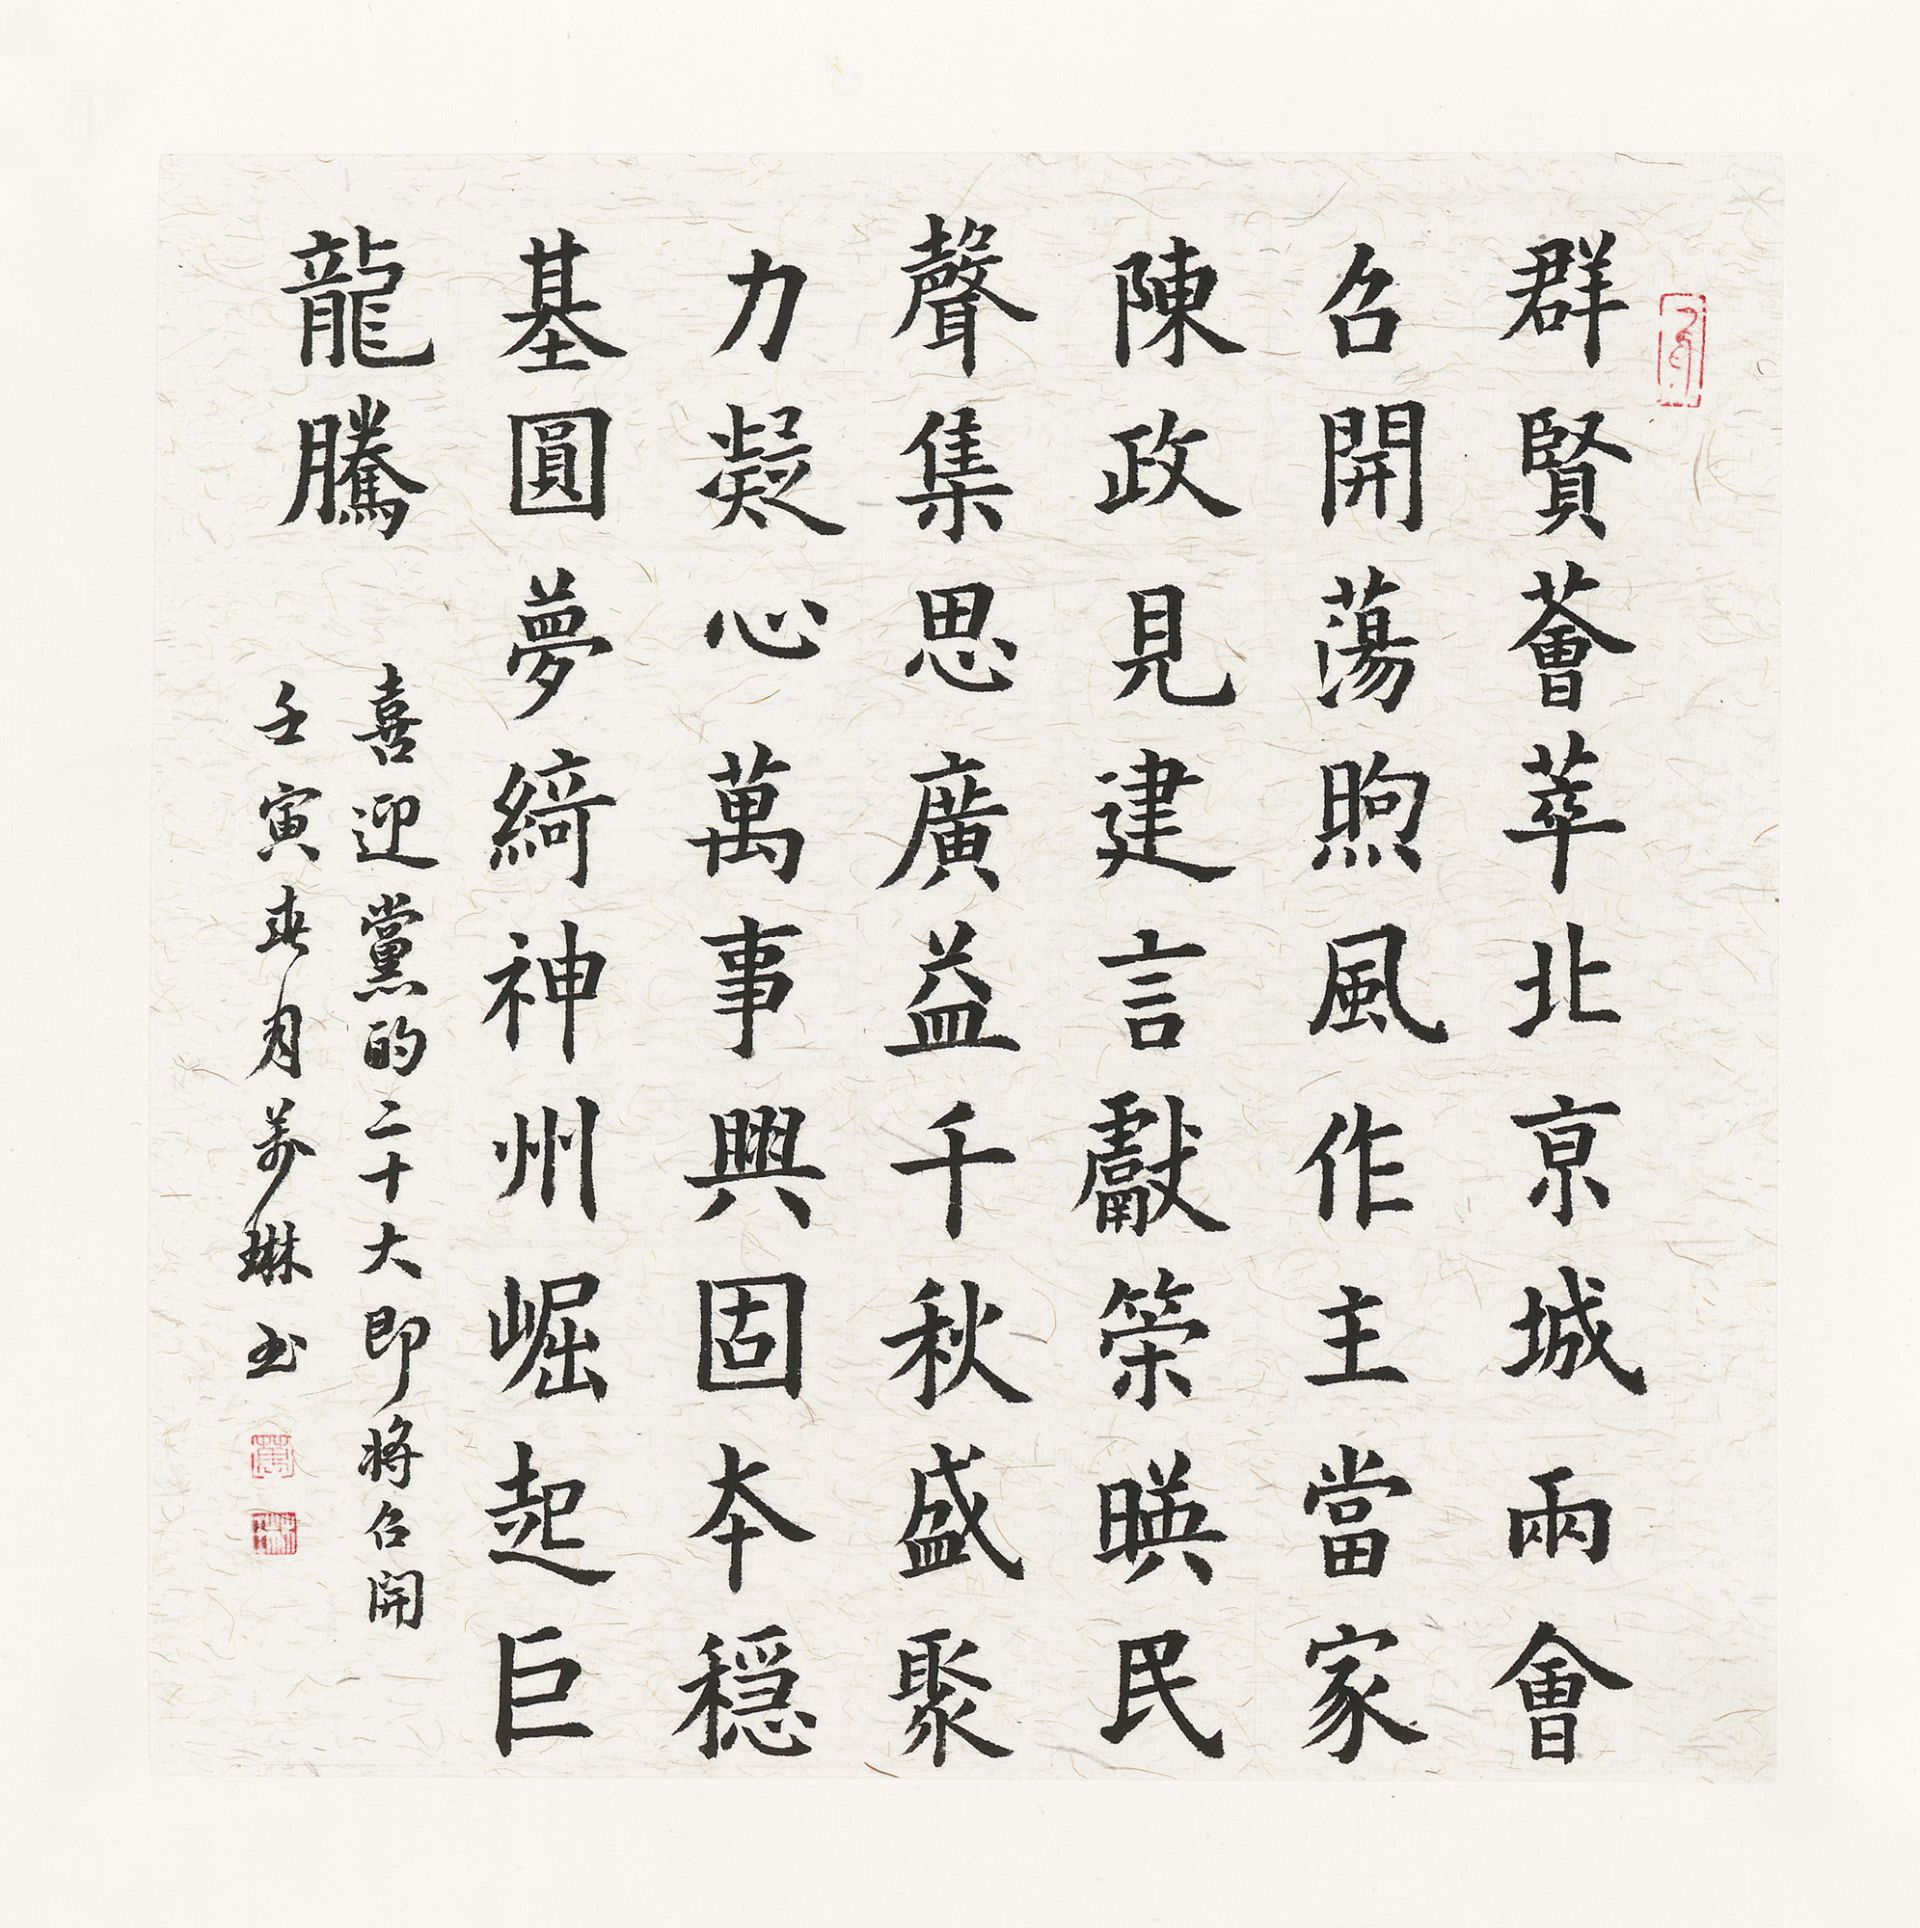 群賢薈萃北京城兩會
召開蕩煦風作主當家
陳政見建言獻策暎民
聲集思廣益千秋盛聚
力凝心萬事興固本穩
基圓夢綺神州崛起巨
龍騰
喜迎黨的二十大即將召開
壬寅春月萬琳书